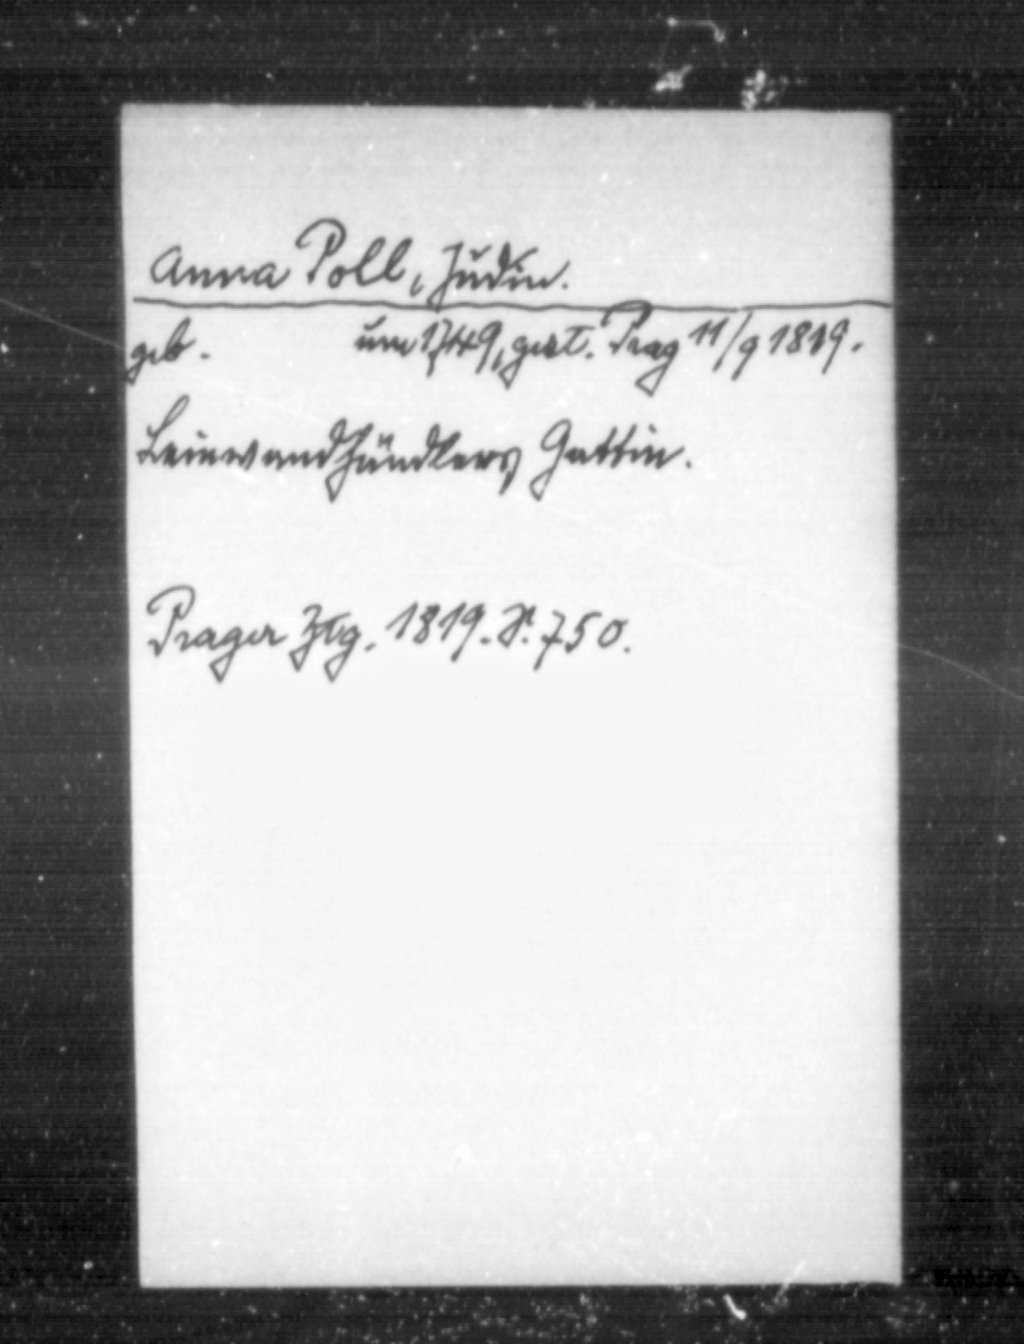 Anna Poll, Jüdin.
geb. um 1749, gest. Prag 11/9 1819.
Leinwandhändlers Gattin.
Prager Ztg. 1819. S. 750.